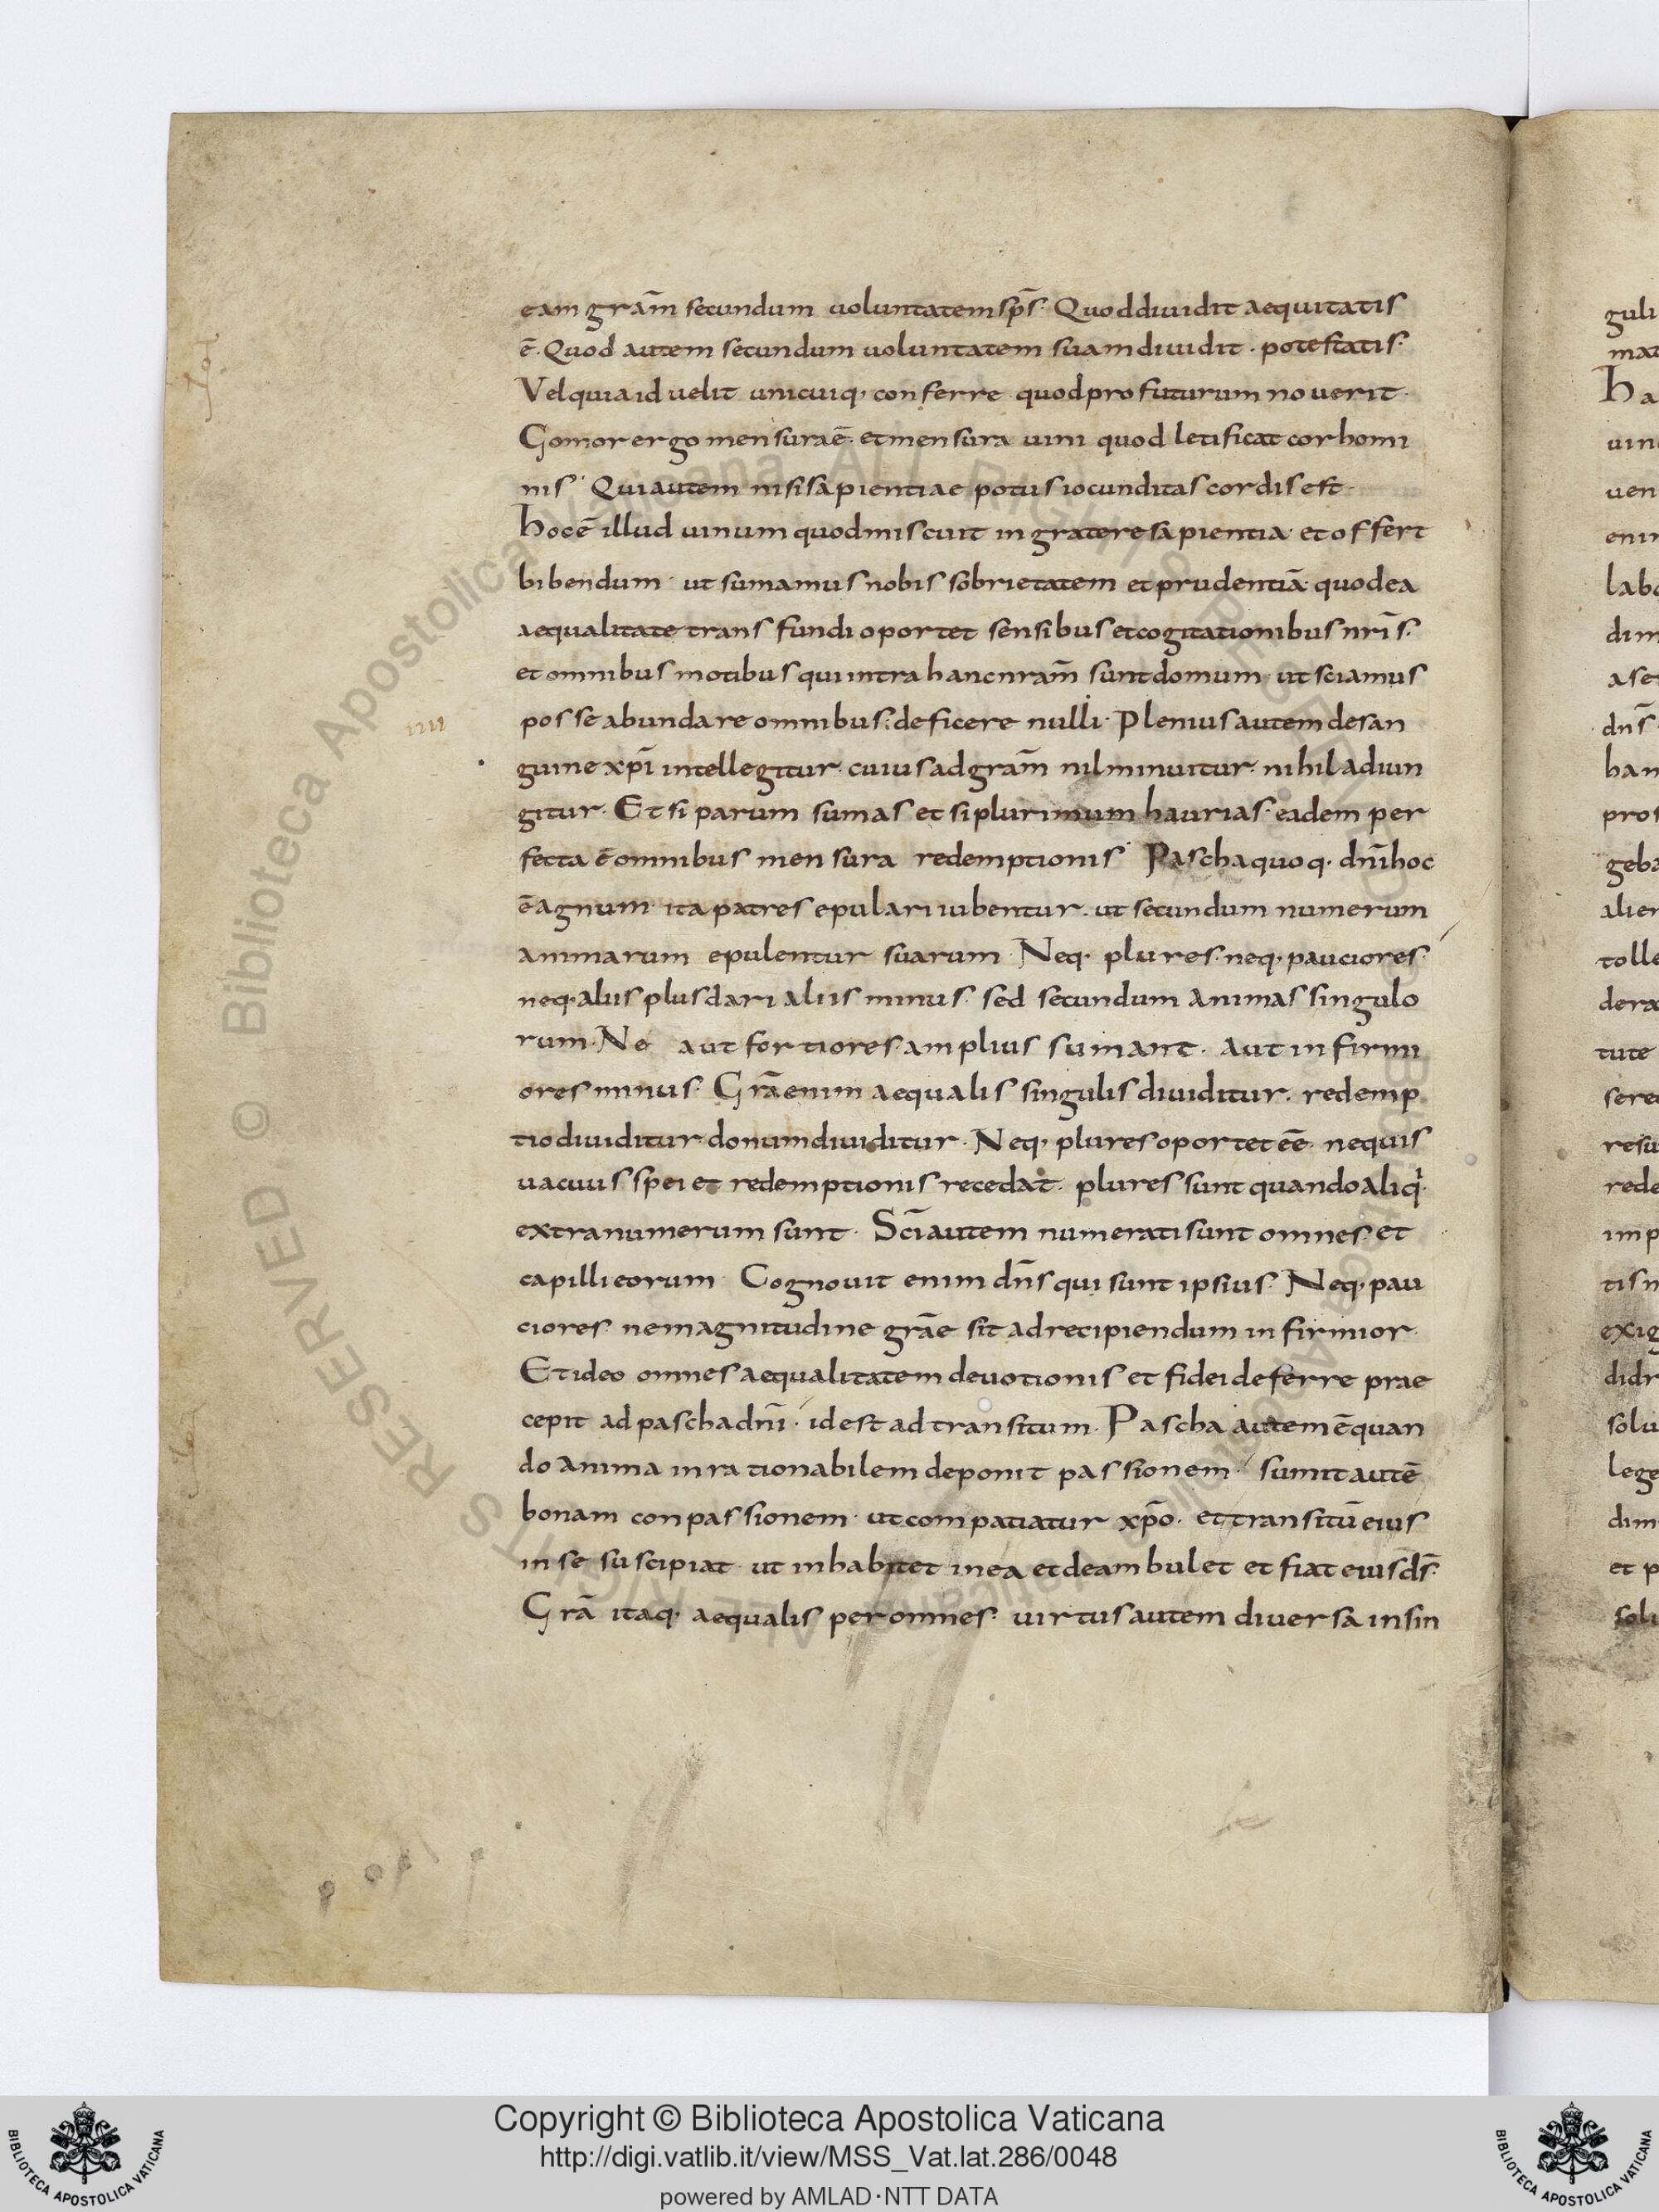 eam gram̄ secundum uoluntatem sp̄s· Quod diuidit aequitatis
ē· Quod autem secundum uoluntatem suam diuidit· potestatis·
Vel quia id uelit unicuiq; conferre quod profuturum nouerit·
Gomor ergo mensura ē· et mensura uini quod letificat cor homi
nis· Qui autem nisi sapientiae potus iocunditas cordis est·
hoc ē illud uinum quod miscuit in gratere sapientia· et offert
bibendum· ut sumamus nobis sobrietatem et prudentiā· quod ea
aequalitate transfundi oportet sensibus et cogitationibus nr̄is·
et omnibus motibus qui intra hanc nram̄ sunt domum· ut sciamus
posse abundare omnibus· deficere nulli· Plenius autem de san
guine xp̄i intellegitur· cuius ad gram̄ nil minuitur· nihil adiun
gitur· Et si parum sumas et si plurimum haurias· eadem per
fecta ē omnibus mensura redemptionis· Pascha quoq· dn̄i hoc
ē agnum· ita patres epulari iubentur· ut secundum numerum
animarum epulentur suarum· Neq· plures· neq· pauciores·
neq· aliis plus dari aliis minus· sed secundum animas singulo
rum· Ne aut fortiores amplius sumant· aut infirmi
ores minus· Grā enim aequalis singulis diuiditur· redemp
tio diuiditur· donum diuiditur· Neq; plures oportet eē· ne quis
uacuus spei et redemptionis recedat· plures sunt quando aliq·
extra numerum sunt· Sc̄i autem numerati sunt omnes· et
capilli eorum· Cognouit enim dn̄s qui sunt ipsius· Neq; pau
ciores· ne magnitudine grāe sit ad recipiendum infirmior·
Et ideo omnes aequalitatem deuotionis et fidei deferre prae
cepit ad pascha dn̄i· id est ad transitum· Pascha autem ē quan
do anima inrationabilem deponit passionem· sumit autē
bonam conpassionem· ut compatiatur xp̄o· et transitū eius
in se suscipiat· ut inhabitet in ea et deambulet et fiat eius ds̄·
Grā itaq· aequalis per omnes· uirtus autem diuersa in sin
guli
mat
ha
uin
uen
enim
labo
dim
a se
dn̄s
han
pros
geba
alien
tolle
dera
tute
sere
resu
rede
imp
tis n
exig
didr
solu
lege
dim
et p
solu
© Biblioteca Apostolica Vaticana ALL RIGHTS RESERVED
Copyright © Biblioteca Apostolica Vaticana
http://digi.vatlib.it/view/MSS_Vat.lat.286/0048
powered by AMLAD·NTT DATA
BIBLIOTECA APOSTOLICA VATICANA
BIBLIOTECA APOSTOLICA VATICANA